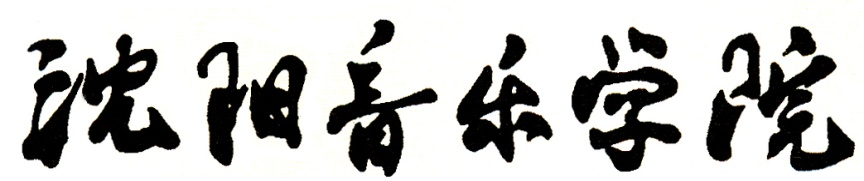 沈阳音乐学院